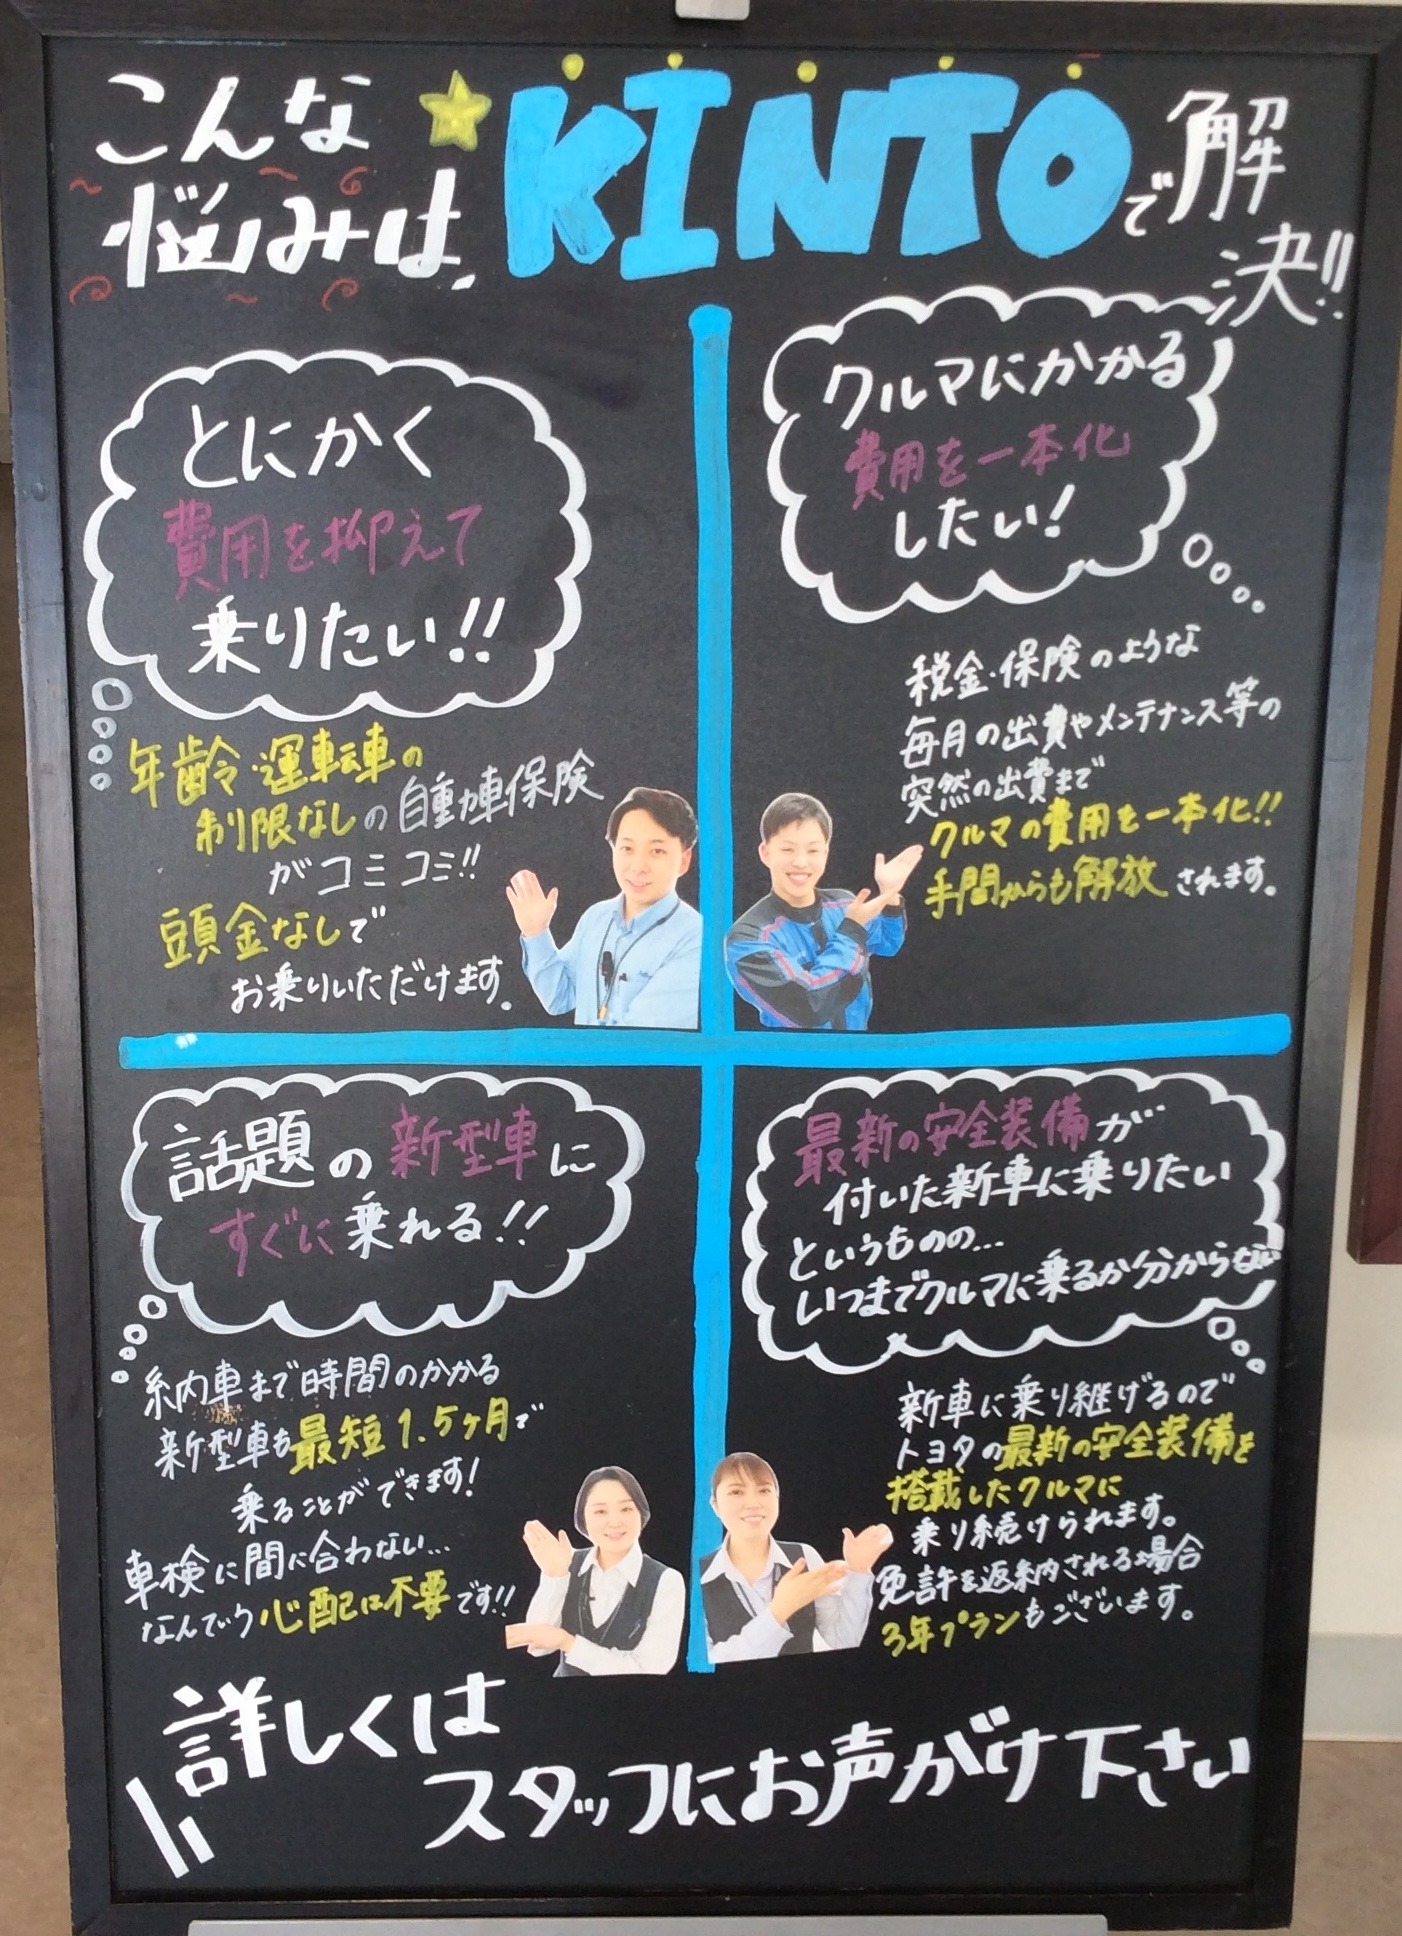 こんな
悩みは、
KINTOで解
決!!
とにかく
費用を抑えて
乗りたい!!
年齢・運転車の
制限なしの自動車保険
がコミコミ!!
頭金なしで
お乗りいただけます。
クルマにかかる
費用を一本化
したい!
税金・保険のような
毎月の出費やメンテナンス等の
突然の出費まで
クルマの費用を一本化!!
手間からも解放されます。
話題の新型車に
すぐに乗れる!!
納車まで時間のかかる
新型車も最短1.5ヶ月で
乗ることができます!
車検に間に合わない…
なんていう心配は不要です!!
最新の安全装備が
付いた新車に乗りたい
というものの…
いつまでクルマに乗るか分からない
新車に乗り継げるので
トヨタの最新の安全装備を
搭載したクルマに
乗り続けられます。
免許を返納される場合
3年プランもございます。
詳しくは
スタッフにお声がけ下さい